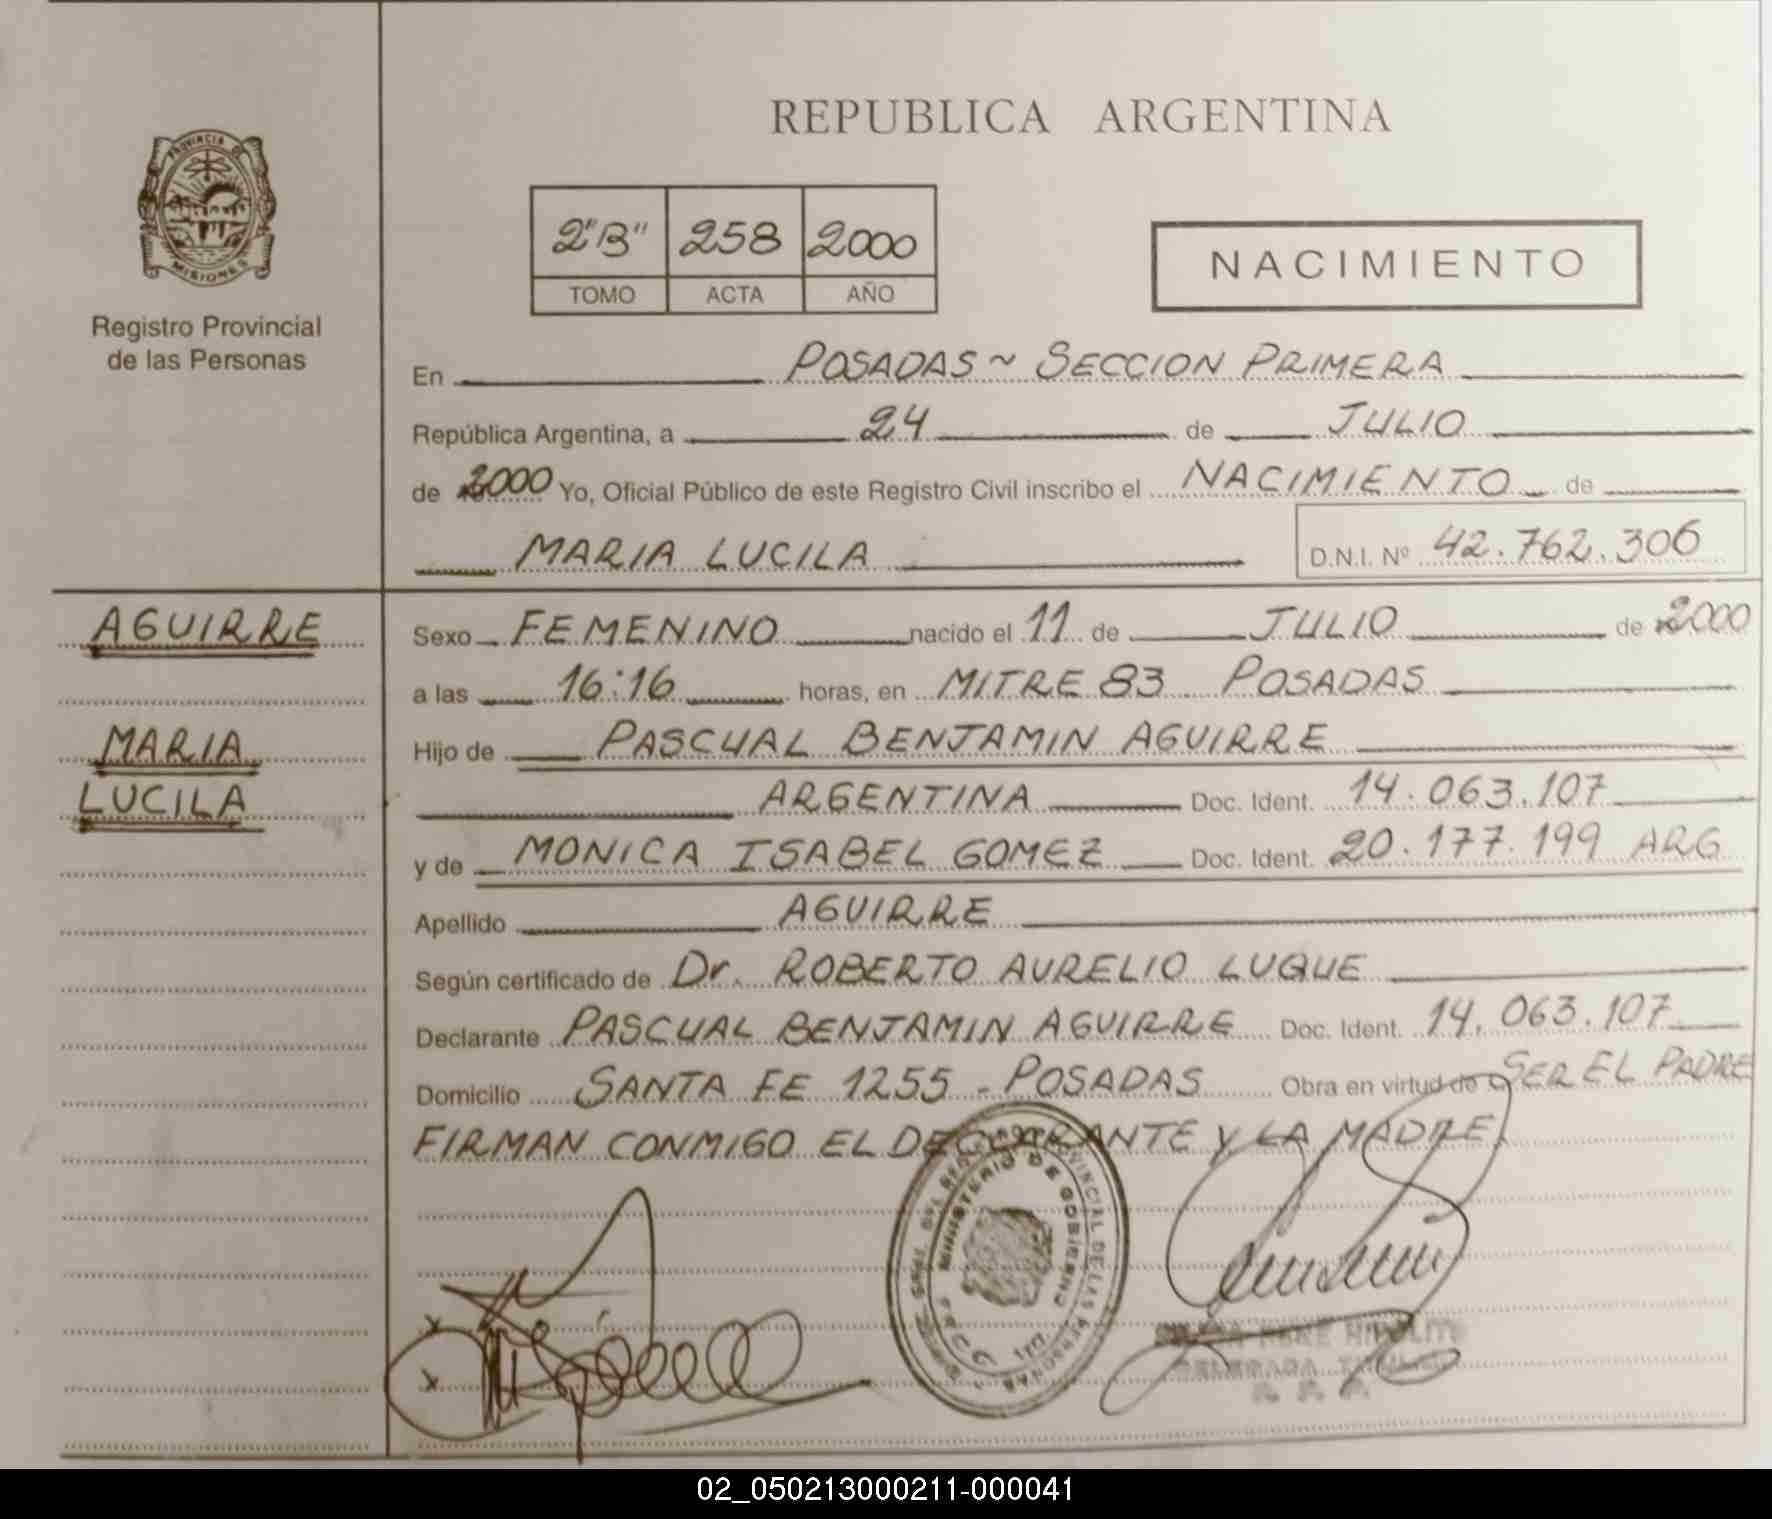 REPUBLICA ARGENTINA
PROVINCIA DE
MISIONES
Registro Provincial
de las Personas
2"B" 258 2000
TOMO ACTA AÑO
NACIMIENTO
En POSADAS ~ SECCION PRIMERA
República Argentina, a 24 de JULIO
de 2000 Yo, Oficial Público de este Registro Civil inscribo el NACIMIENTO de
MARIA LUCILA D.N.I. Nº 42.762.306
AGUIRRE
MARIA
LUCILA
Sexo FEMENINO nacido el 11 de JULIO de 2000
a las 16:16 horas, en MITRE 83 POSADAS
Hijo de PASCUAL BENJAMIN AGUIRRE
ARGENTINA Doc. Ident. 14.063.107
y de MONICA ISABEL GOMEZ Doc. Ident. 20.177.199 ARG
Apellido AGUIRRE
Según certificado de Dr. ROBERTO AURELIO LUQUE
Declarante PASCUAL BENJAMIN AGUIRRE Doc. Ident. 14.063.107
Domicilio SANTA FE 1255 - POSADAS Obra en virtud de SER EL PADRE
FIRMAN CONMIGO EL DECLARANTE Y LA MADRE
PROVINCIAL DE LAS PERSONAS
MINISTERIO DE GOBIERNO
1ra.
HIPOLITO
DELEGADA
02_050213000211-000041